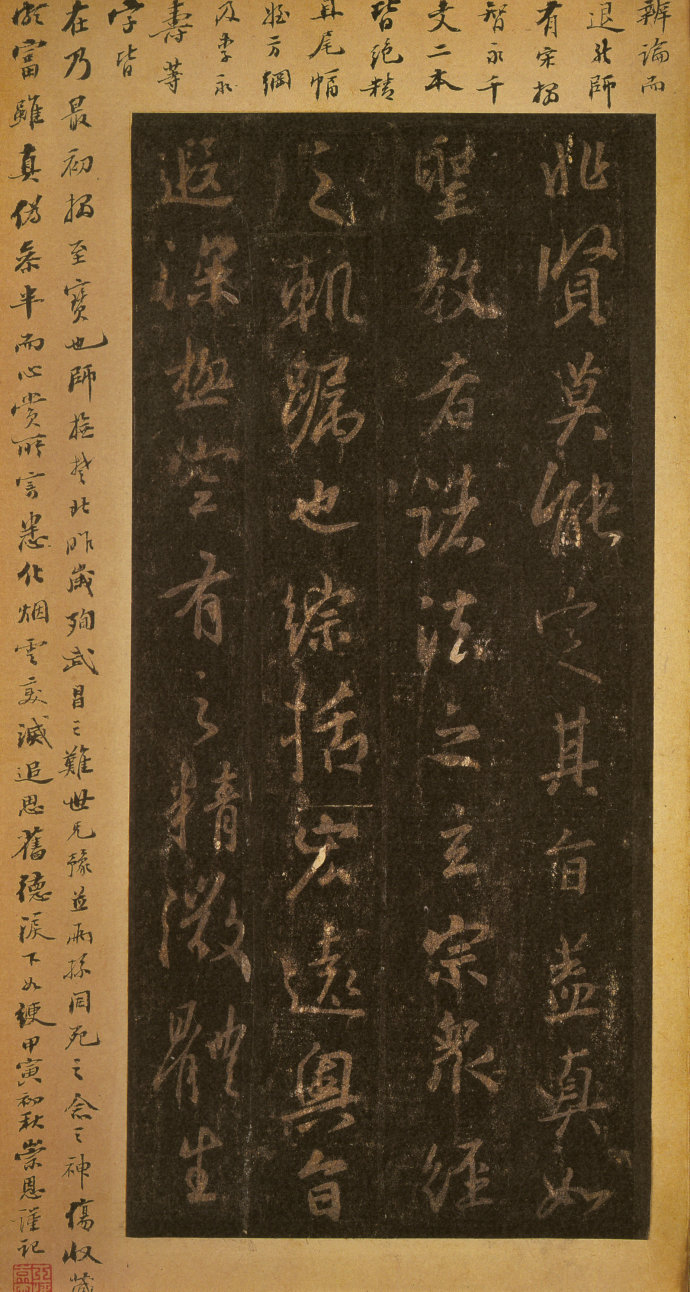 辨論而
退
師
有宋搨
智永千
文二本
皆絕精
且尾幅
方綱
及李
壽等
字皆
在乃最初搨至寶也師撫楚北昨歲殉武昌之難世兄豫並兩孫同死之念之神傷收藏
頗富雖真偽參半而心賞所寄悉化烟雲變滅追思舊德淚下如綆甲寅初秋崇恩謹記
非賢莫能定其旨蓋真如
聖教者諸法之玄宗眾經
之軌躅也綜括宏遠奧旨
遐深極空有之精微體生